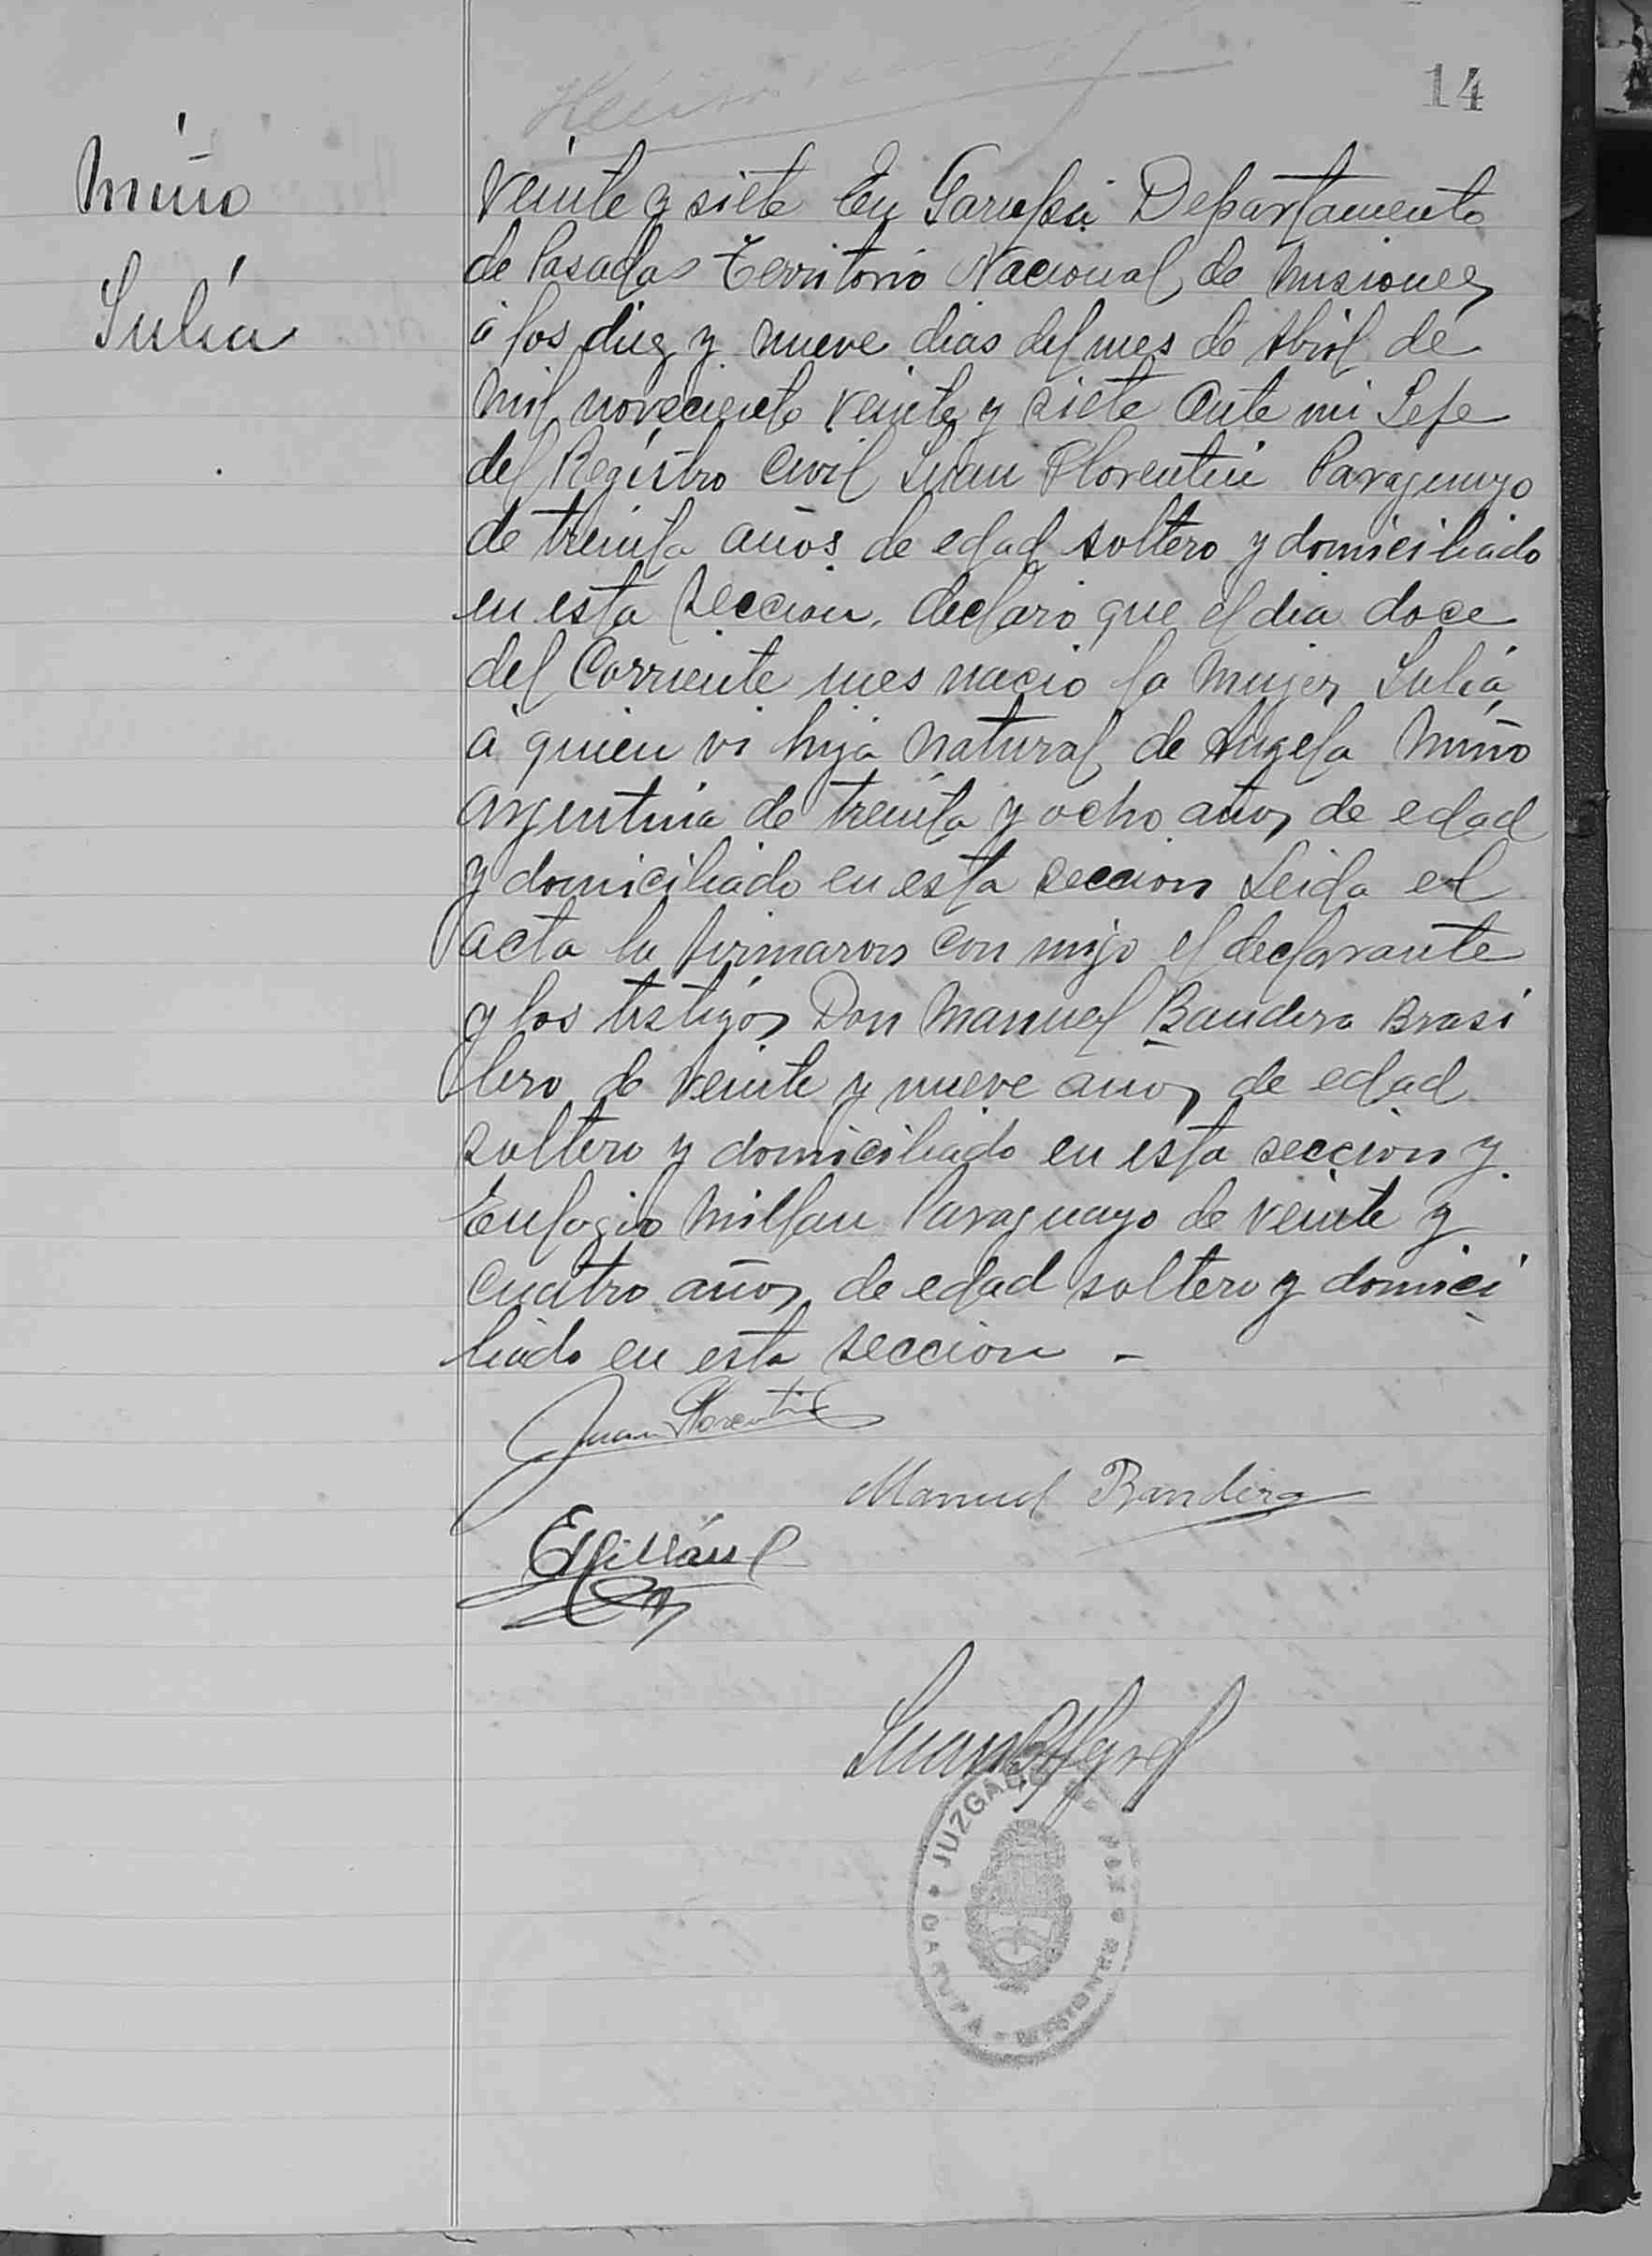 14
Miño
Julia
Veinte y siete En Garupá Departamento
de Posadas Territorio Nacional de Misiones
á los diez y nueve dias del mes de Abril de
mil noveciento veinte y siete Ante mi Jefe
del Registro Civil Juan Florentin Paraguayo
de treinta años de edad soltero y domiciliado
en esta Seccion, declaró que el dia doce
del Corriente mes nació la mujer Julia
á quien vi hija natural de Angela Miño
argentina de treinta y ocho años de edad
y domiciliado en esta seccion Leida el
acta la firmaron con migo el declarante
y los testigos Don Manuel Bandera Brasi
lero de veinte y nueve años de edad
soltero y domiciliado en esta seccion y
Eulogio Millan Paraguayo de veinte y
cuatro años de edad soltero y domici
liado en esta seccion -
Juan Florentin
Manuel Bandera
EMillán
Juan
JUZGADO DE PAZ
GARUPA • MISIONES